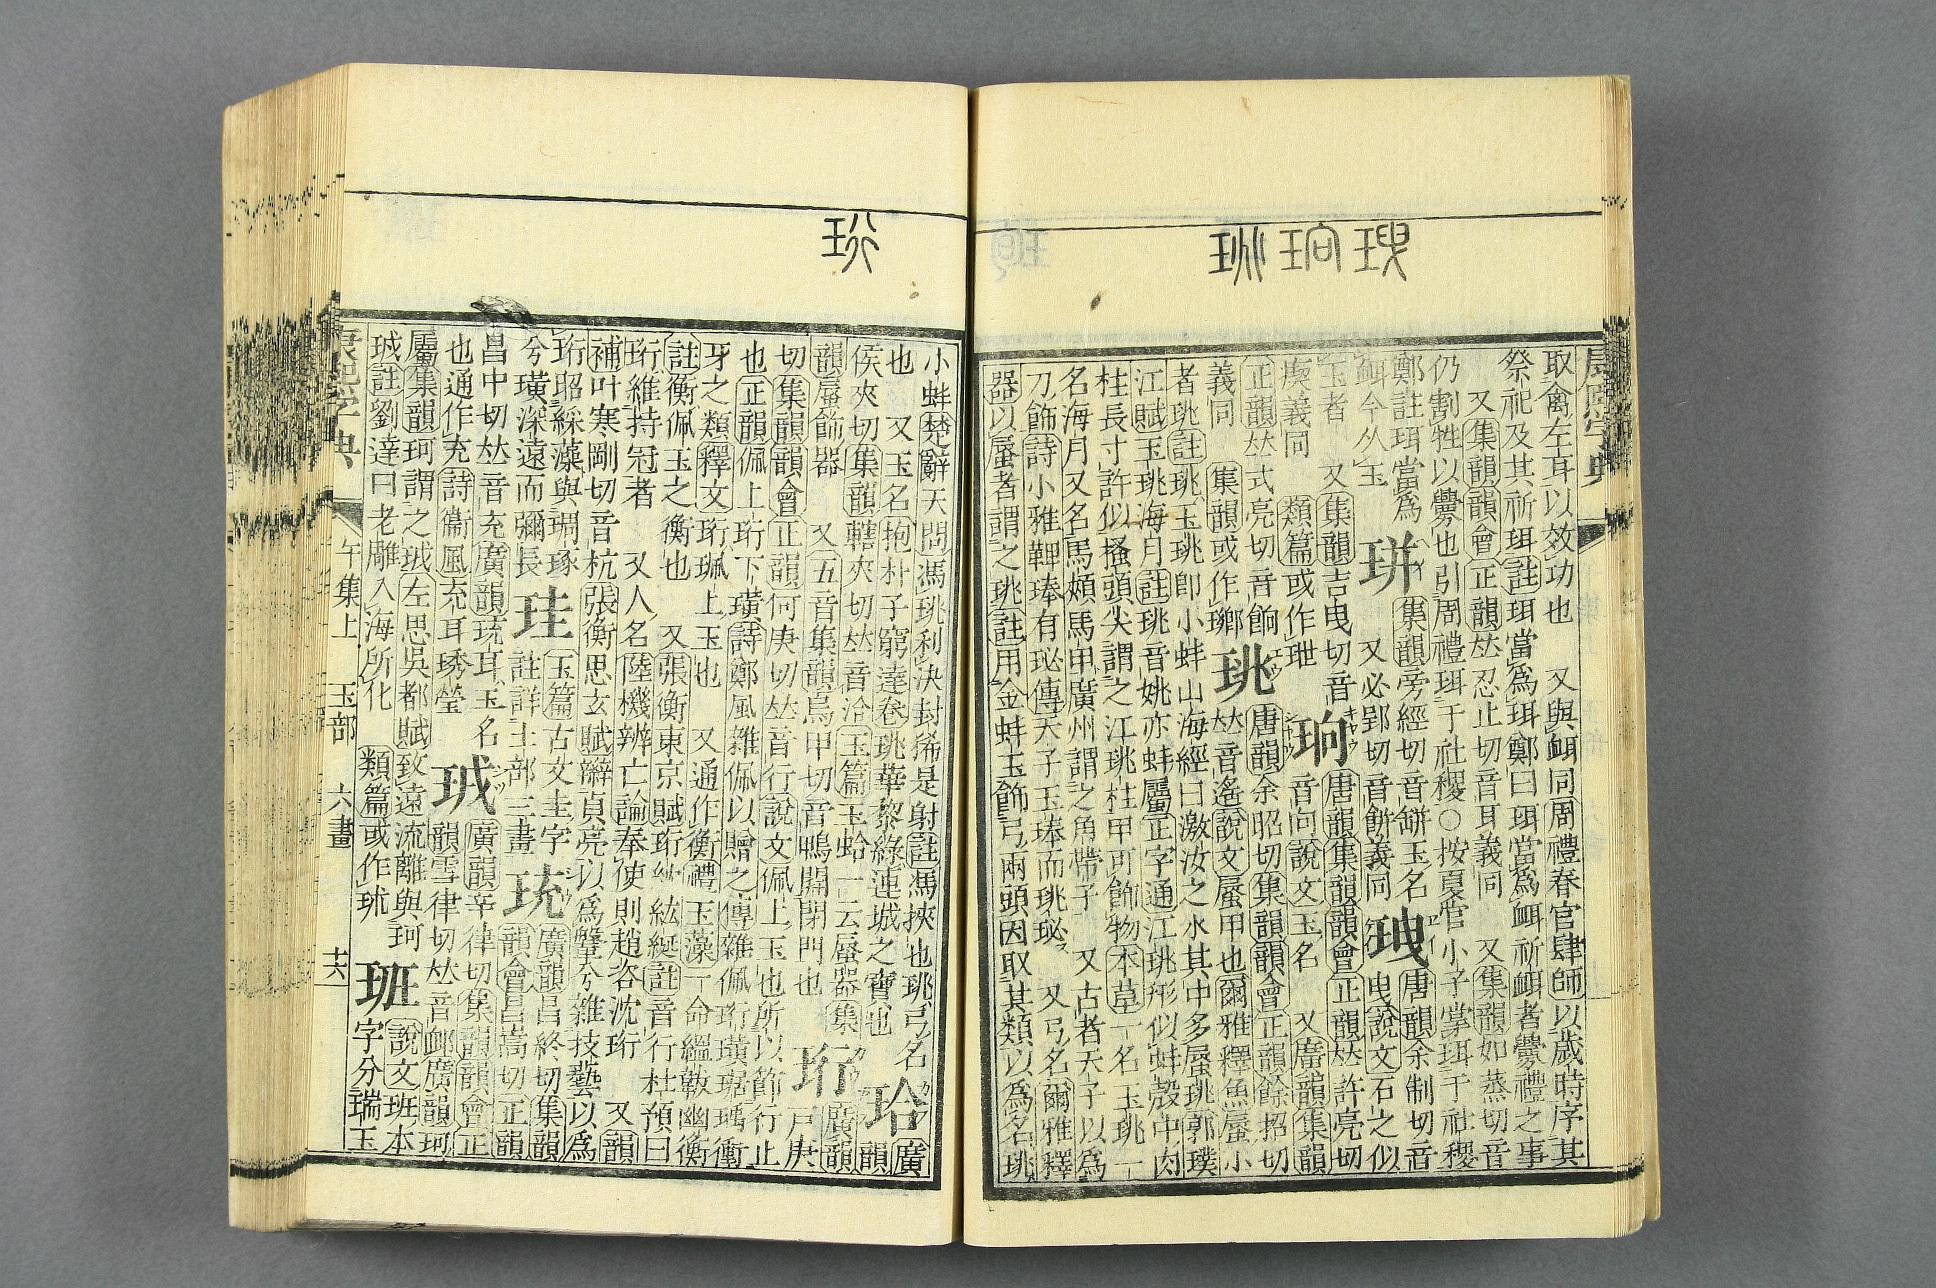 取禽左耳以效功也　又與衈同周禮春官肆師以歲時序其
祭祀及其祈珥註珥當爲珥鄭曰珥當爲衈祈衈者釁禮之事
又集韻韻會正韻𠀤忍止切音耳義同　又集韻如蒸切音
仍割牲以釁也引周禮珥于社稷○按夏官小子掌珥于社稷
鄭註珥當爲
衈今从玉
集韻旁經切音缾玉名
又必郢切音餅義同
唐韻余制切音
曳說文石之似
玉者　又集韻吉曳切音
義同　類篇或作玴
珦
唐韻集韻韻會正韻𠀤許亮切
音向說文玉名　又廣韻集韻
正韻𠀤式亮切音餉
義同　集韻或作
珧
唐韻余昭切集韻韻會正韻餘招切
𠀤音遙說文蜃甲也爾雅釋魚蜃小
者珧註珧玉珧卽小蚌山海經曰激汝之水其中多蜃珧郭璞
江賦玉珧海月註珧音姚亦蚌屬正字通江珧形似蚌殼中肉
柱長寸許似搔頭尖謂之江珧柱甲可飾物本草一名玉珧一
名海月又名馬頰馬甲廣州謂之角帶子　又古者天子以爲
刀飾詩小雅鞞琫有珌傳天子玉琫而珧珌　又弓名爾雅釋
器以蜃者謂之珧註用金蚌玉飾弓兩頭因取其類以爲名珧
小蚌楚辭天問馮珧利決封豨是射註馮挾也珧弓名
也　又玉名抱朴子窮達卷珧華黎綠連城之寶也
珨
廣
韻
侯夾切集韻轄夾切𠀤音洽玉篇玉蛤一云蜃器集
韻蜃飾器　又五音集韻烏甲切音鴨開閉門也
珩
廣韻
戶庚
切集韻韻會正韻何庚切𠀤音行說文佩上玉也所以節行止
也正韻佩上珩下璜詩鄭風雜佩以贈之傳雜佩珩璜琚瑀衝
牙之類釋文珩珮上玉也　又通作衡禮玉藻一命縕韍幽衡
註衡佩玉之衡也　又張衡東京賦珩紞紘綖註音行杜預曰
珩維持冠者　又人名陸機辨亡論奉使則趙咨沈珩　又韻
補叶寒剛切音杭張衡思玄賦辮貞亮以爲鞶兮雜技藝以爲
珩昭綵藻與琱琢
兮璜深遠而彌長
珪
玉篇古文圭字
註詳土部三畫
珫
廣韻昌終切集韻
韻會昌嵩切正韻
昌中切𠀤音充廣韻珫耳玉名
也通作充詩衞風充耳琇瑩
珬
廣韻辛律切集韻韻會正
韻雪律切𠀤音䘏廣韻珂
屬集韻珂謂之珬左思吳都賦致遠流離與珂
珬註劉逵曰老雕入海所化　類篇或作
班
說文班本
字分瑞玉
康熙字典　午集上　玉部　六畫　十六